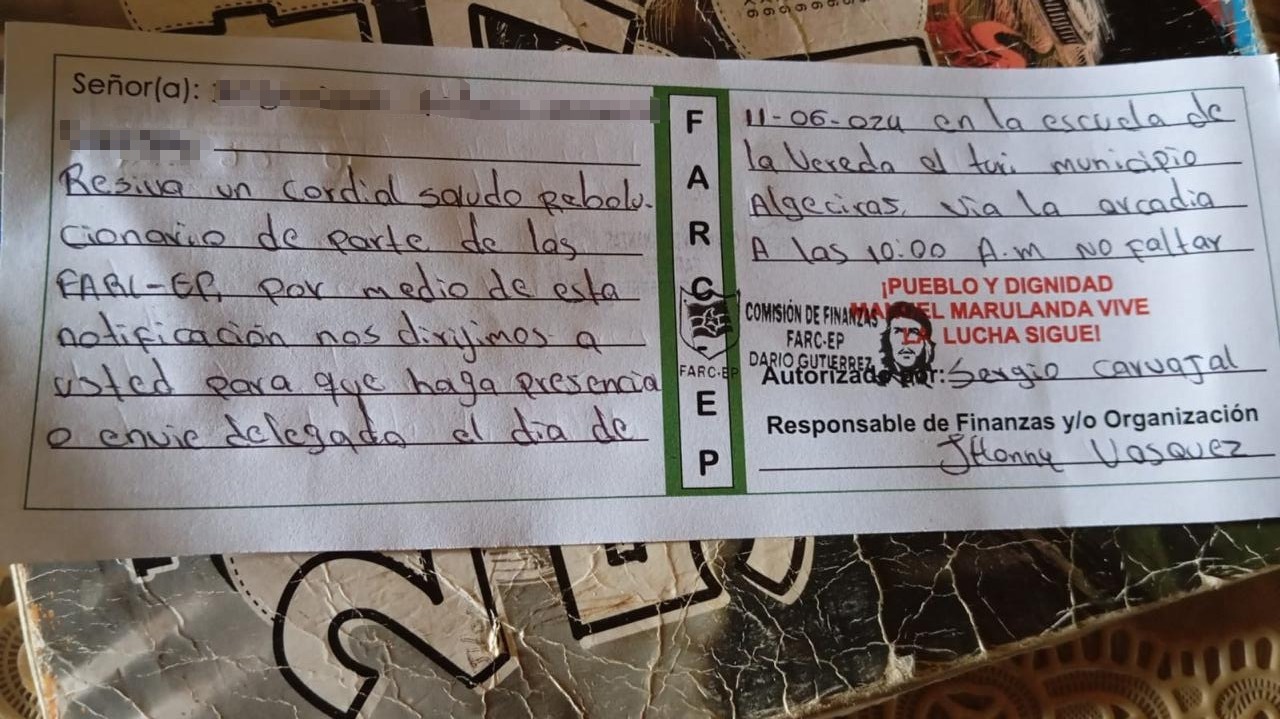 Señor(a):
Resiva un cordial saludo Rebolu-
cionario de parte de las
FARC-EP, por medio de esta
notificación nos dirijimos a
usted para que haga presencia
o envie delegado el dia de
F
A
R
C
FARC-EP
E
P
11-06-024 en la escuela de
la Vereda el turi municipio
Algeciras, via la arcadia
A las 10:00 A.m NO Faltar
¡PUEBLO Y DIGNIDAD
MANUEL MARULANDA VIVE
LA LUCHA SIGUE!
COMISIÓN DE FINANZAS
FARC-EP
DARIO GUTIERREZ
Autorizado por: Sergio Carvajal
Responsable de Finanzas y/o Organización
JHonny Vasquez